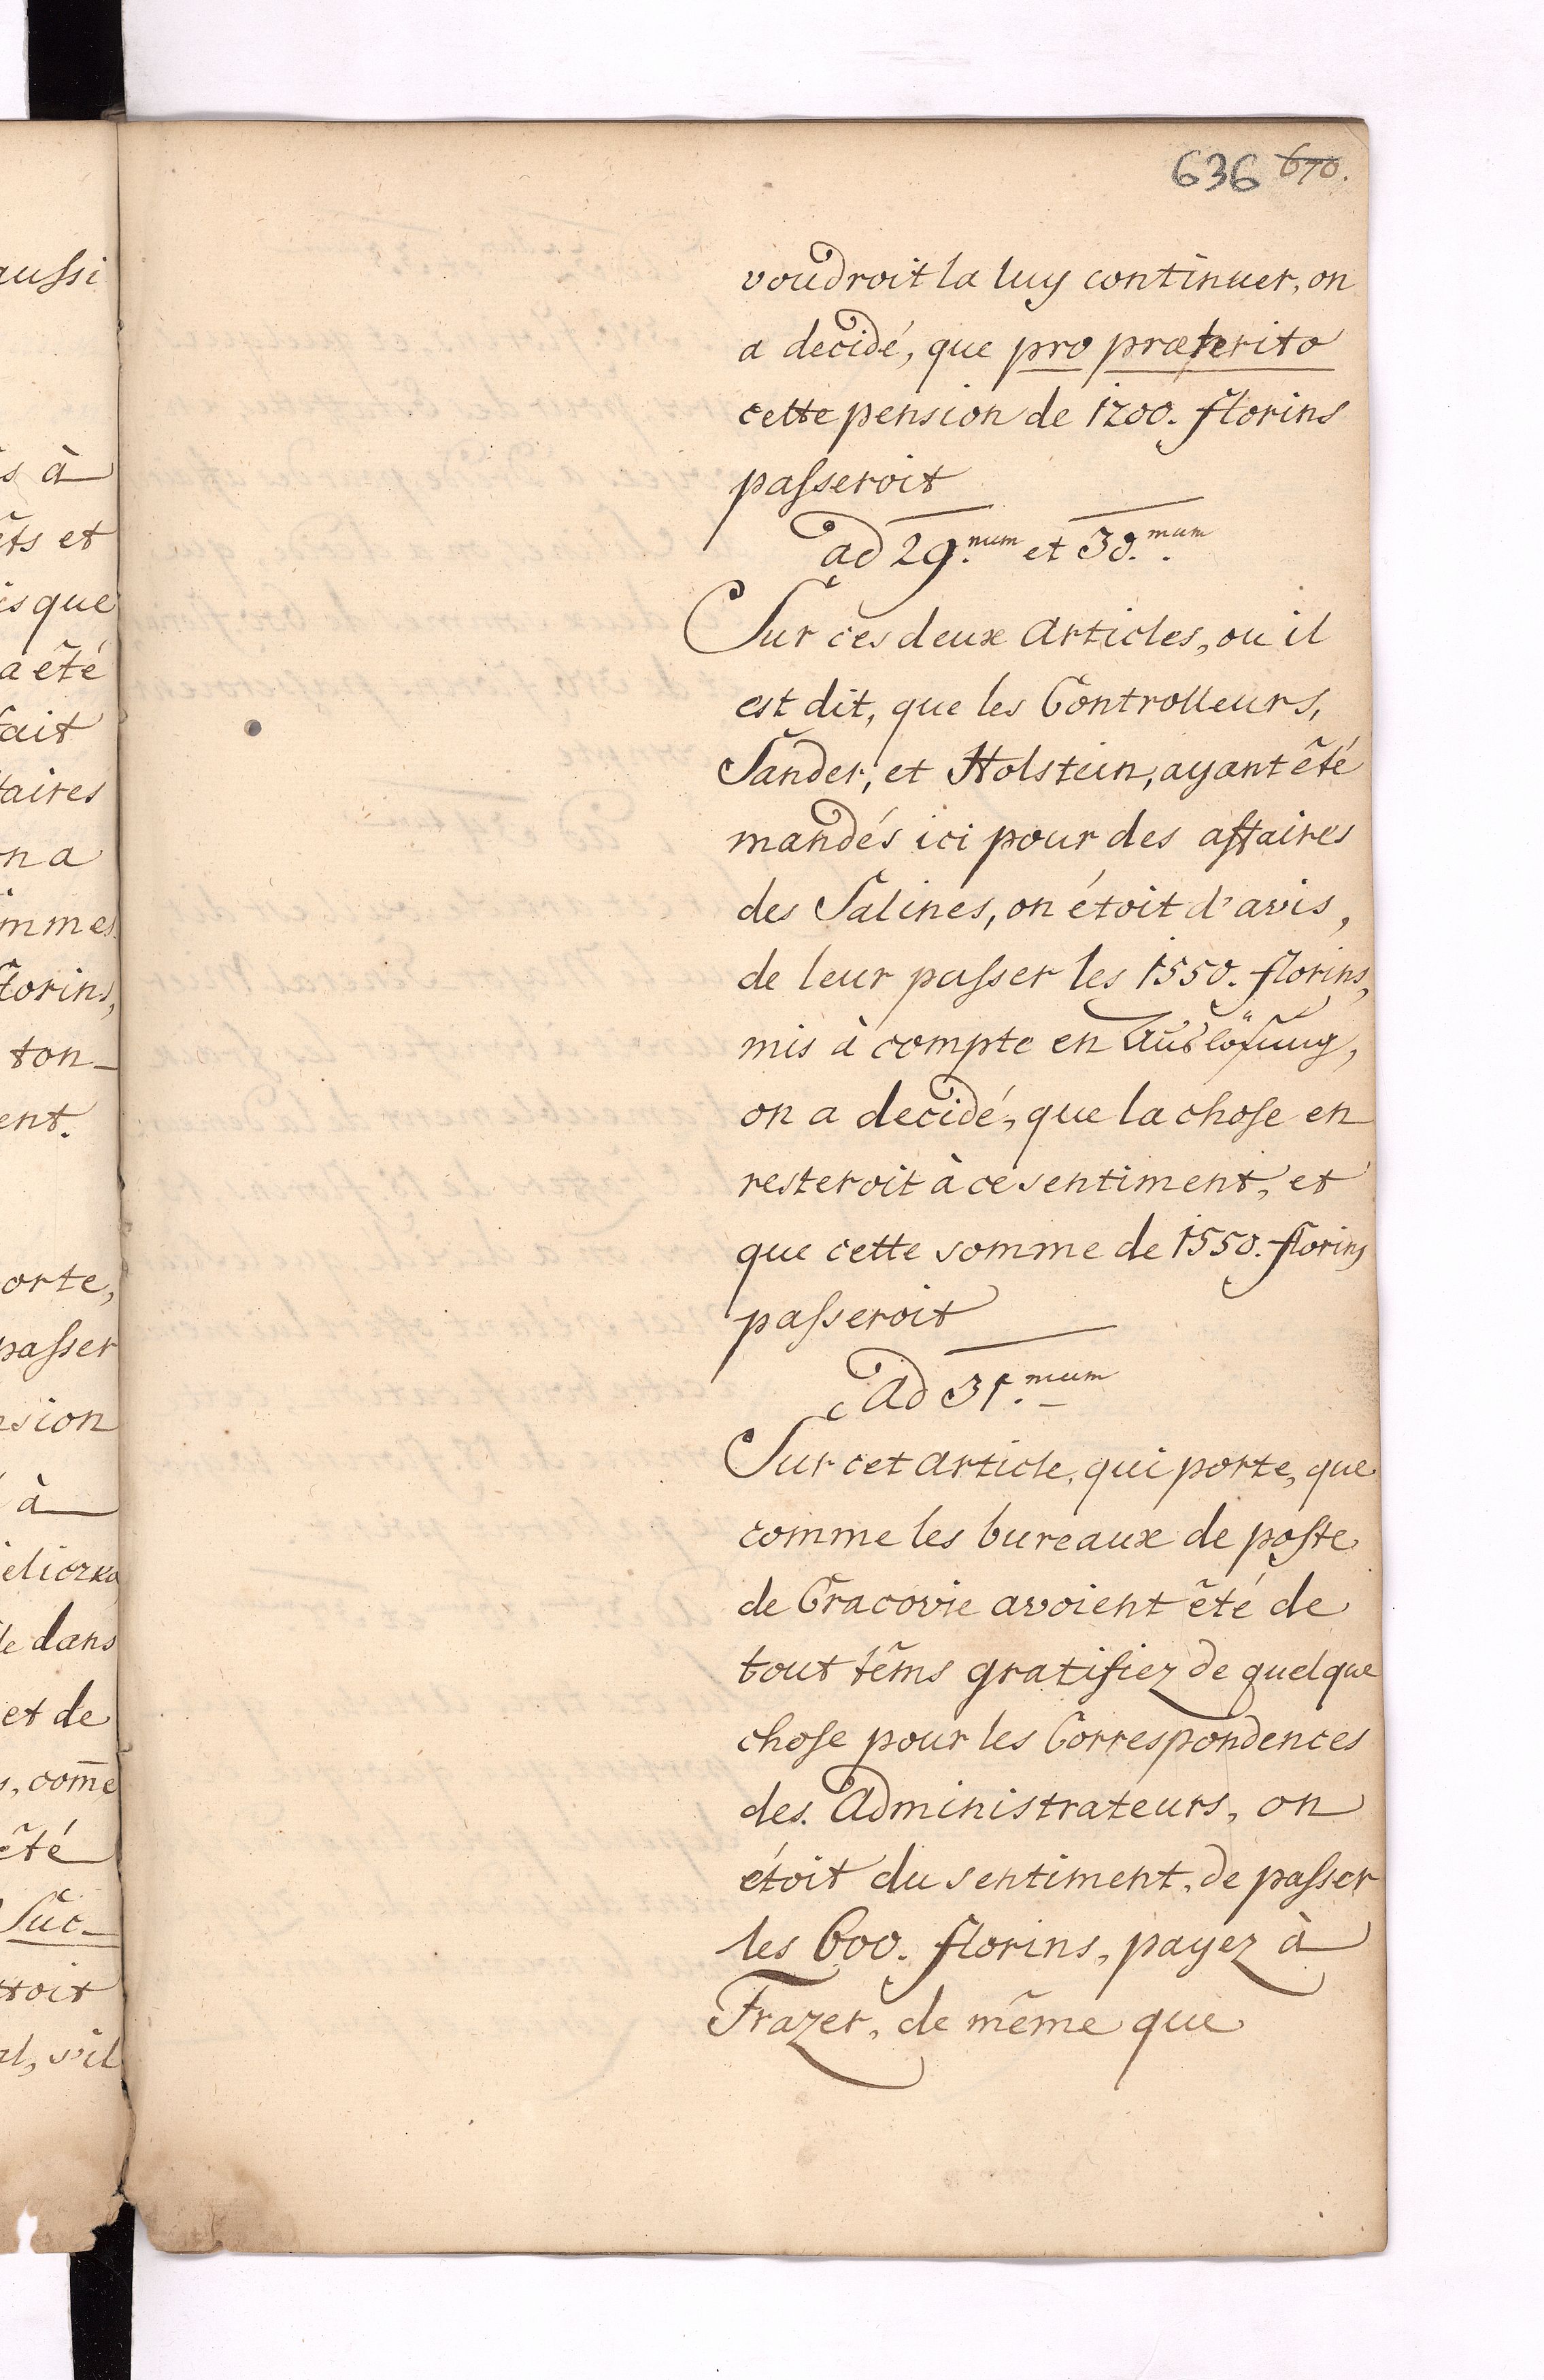 636 670.
voudroit la luy continuer, on
a decidé, que pro præterito
cette pension de 1200. florins
passeroit
ad 29.num et 30.mum
Sur ces deux articles, ou il
est dit, que les Controlleurs,
Sander, et Holstein, ayant été
mandés ici pour des affaires
des Salines, on étoit d'avis,
de leur passer les 1550. florins,
mis à compte en Auslösung,
on a decidé, que la chose en
resteroit à ce sentiment, et
que cette somme de 1550. florins
passeroit
Ad 31.mum
Sur cet article, qui porte, que
comme les bureaux de poste
de Cracovie avoient été de
tout têms gratifiez de quelque
chose pour les Correspondences
des Administrateurs, on
étoit du sentiment, de passer
les 600. florins, payez à
Frazer, de même que
aussi
s à
êts et
is que
a été
fait
taires
n a
mmes
florins,
ton-
ent.
orte,
passer
nsion
à
eliczka
le dans
et de
s, com̄e
été
Suc-
ttoit
al, s'il